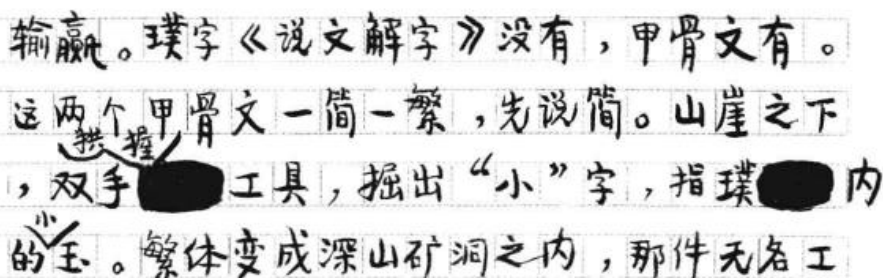 输赢。璞字《说文解字》没有，甲骨文有。
这两个甲骨文一简一繁，先说简。山崖之下
拱 握
，双手工具，掘出“小”字，指璞内
小
的玉。繁体变成深山矿洞之内，那件无名工